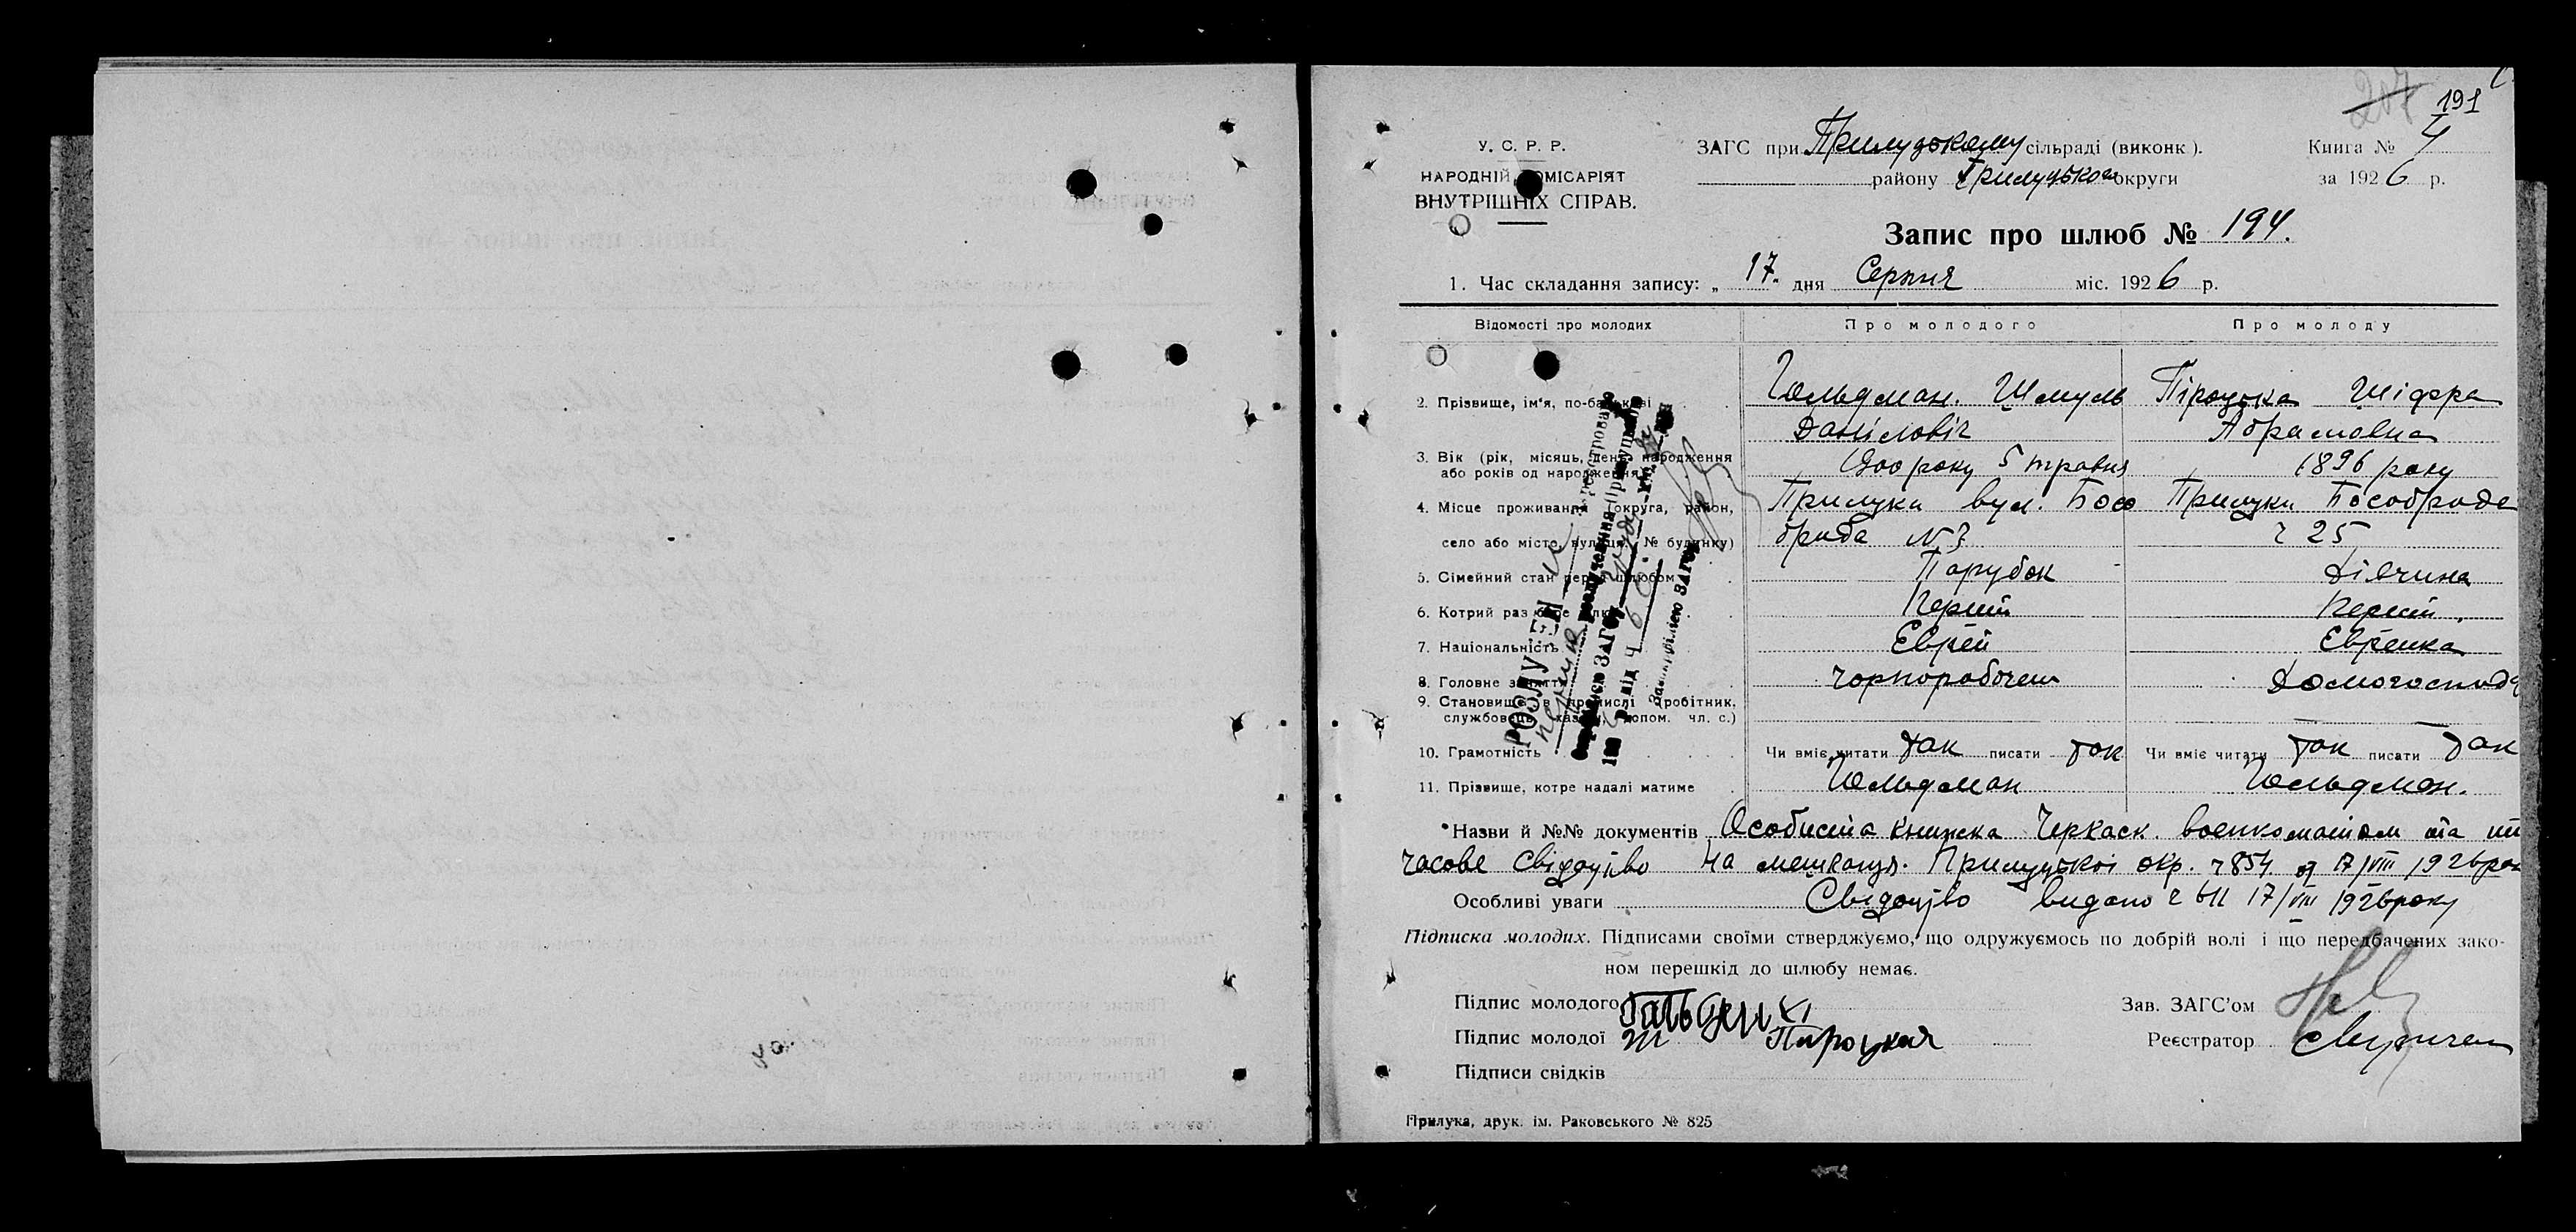 207 191
У. С. Р. Р.
НАРОДНІЙ КОМІСАРІЯТ
ВНУТРІШНІХ СПРАВ.
ЗАГС при Прилуцькому сільраді (виконк).
району Прилуцької округи
Книга № 4
за 1926 р.
Запис про шлюб № 194.
1. Час складання запису: „ 17 „ дня Серпня міс. 1926 р.
Відомості про молодих Про молодого Про молоду
2. Прізвище, ім'я, по-батькові Гольдман. Шмуль Піроцька Шіфра
Даніловіч Абрамовна
3. Вік (рік, місяць, день народження
або років од народження) 1900 року 5 травня 1896 року
4. Місце проживання (округа, район, Прилуки вул. Босо Прилуки Пособрода
село або місто, вулиця, № будинку) брида № 3 ч 25
5. Сімейний стан перед шлюбом Парубок Дівчина
6. Котрий раз бере шлюб Перший Перший
7. Національність Еврей Еврейка
8. Головне заняття Чорноробочем Домогоспод
9. Становище в промислі (робітник,
службовець, хазяїн, допом. чл. с.)
10. Грамотність Чи вміє читати так писати так Чи вміє читати так писати так
11. Прізвище, котре надалі матиме Гольдман Гольдман.
Назви й №№ документів Особиста книжка Черкаск. военкоматом та ти
часове свідоцтво на мешканця. Прилуцької окр. ч 854 від 17/VIII 1926 рок
Особливі уваги Свідоцтво видано ч 611 17/VIII 1926 року
Підписка молодих. Підписами своїми стверджуємо, що одружуємось по добрій волі і що передбачених зако-
ном перешкід до шлюбу немає.
Підпис молодого Зав. ЗАГС'ом
Підпис молодої Ш Пироцкая Реєстратор
Підписи свідків
Прилука, друк. ім. Раковського № 825